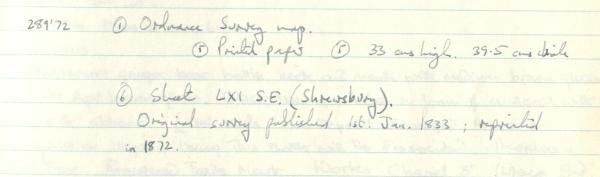 289'72 ① Ordnance Survey map.
③ Printed paper ⑤ 33 cms high. 39.5 cms wide
⑥ Sheet LXI S.E. (Shrewsbury).
Original survey published 1st. Jan. 1833 ; reprinted
in 1872.